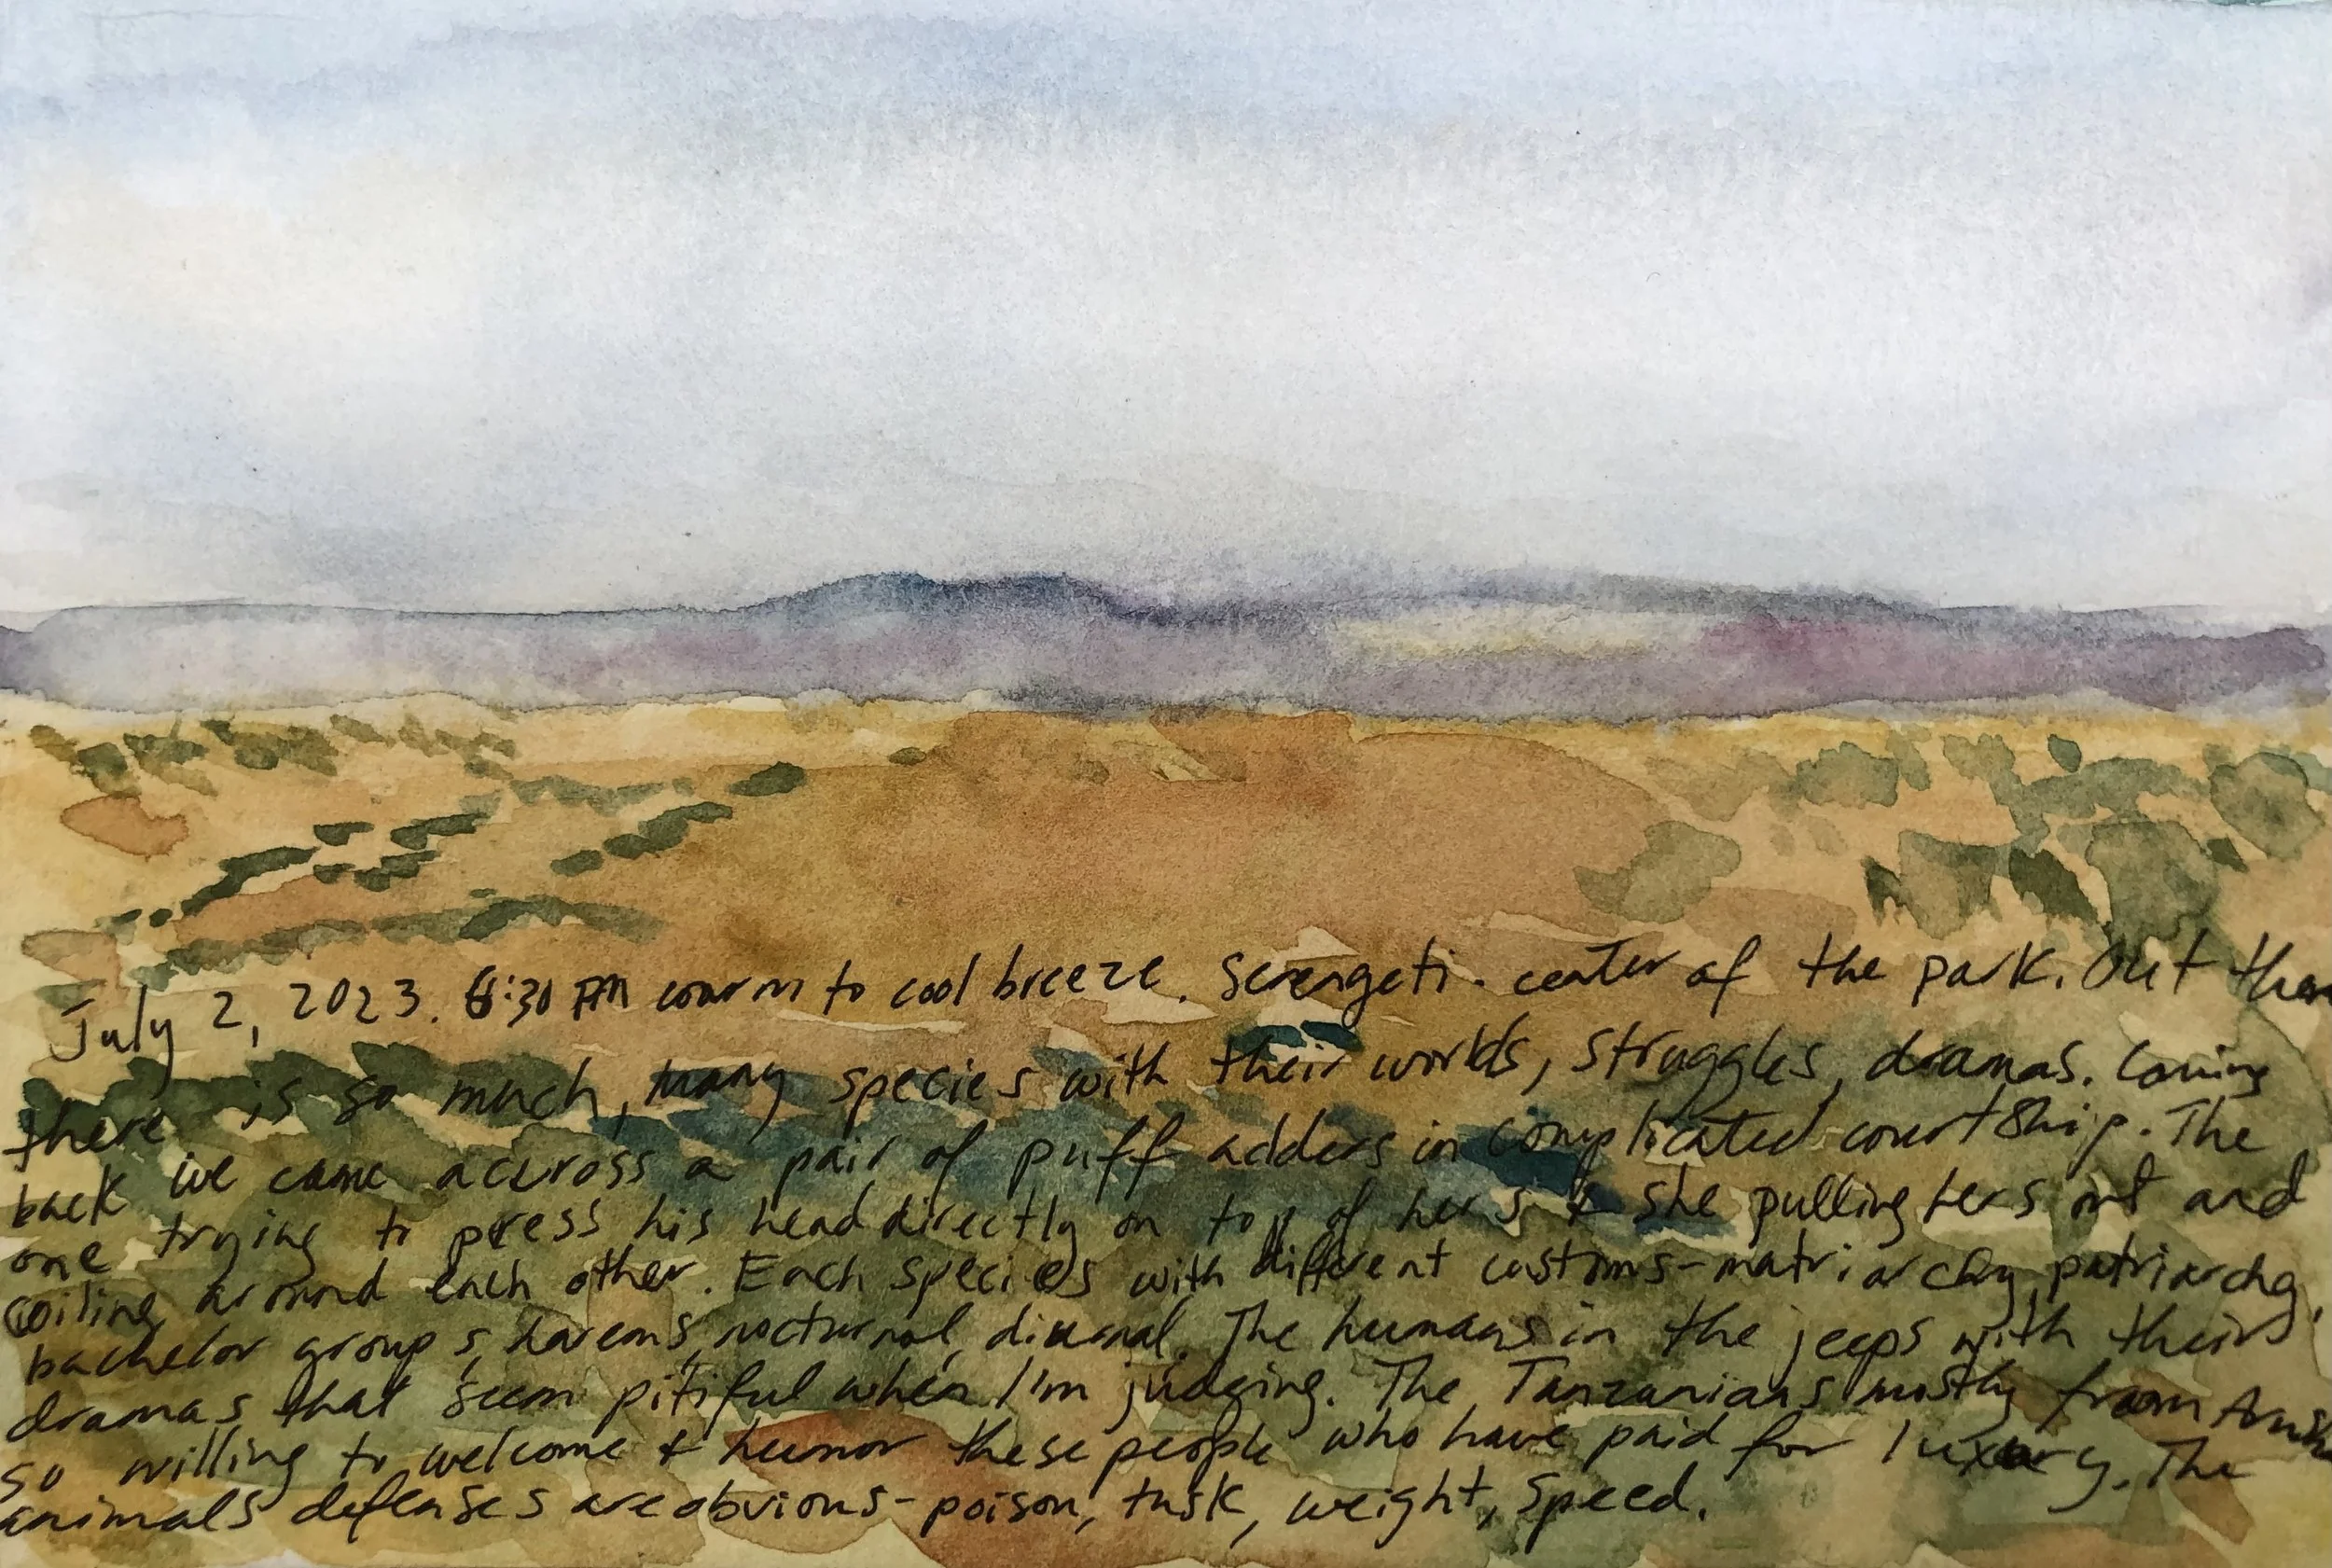 July 2, 2023. 6:30 PM warm to cool breeze. Serengeti. center of the park. Out
there is so much, many species with their worlds, struggles, dramas. Coming
back we came across a pair of puff adders in complicated courtship. The
one trying to press his head directly on top of hers & she pulling hers out and
coiling around each other. Each species with different customs-matriarchy, patriarchy,
bachelor groups, harems, nocturnal, diurnal. The humans in the jeeps with their
dramas that seem pitiful when I'm judging. The Tanzanians mostly from
so willing to welcome & humor these people who have paid for luxury. The
animals defenses are obvious-poison, tusk, weight, speed.